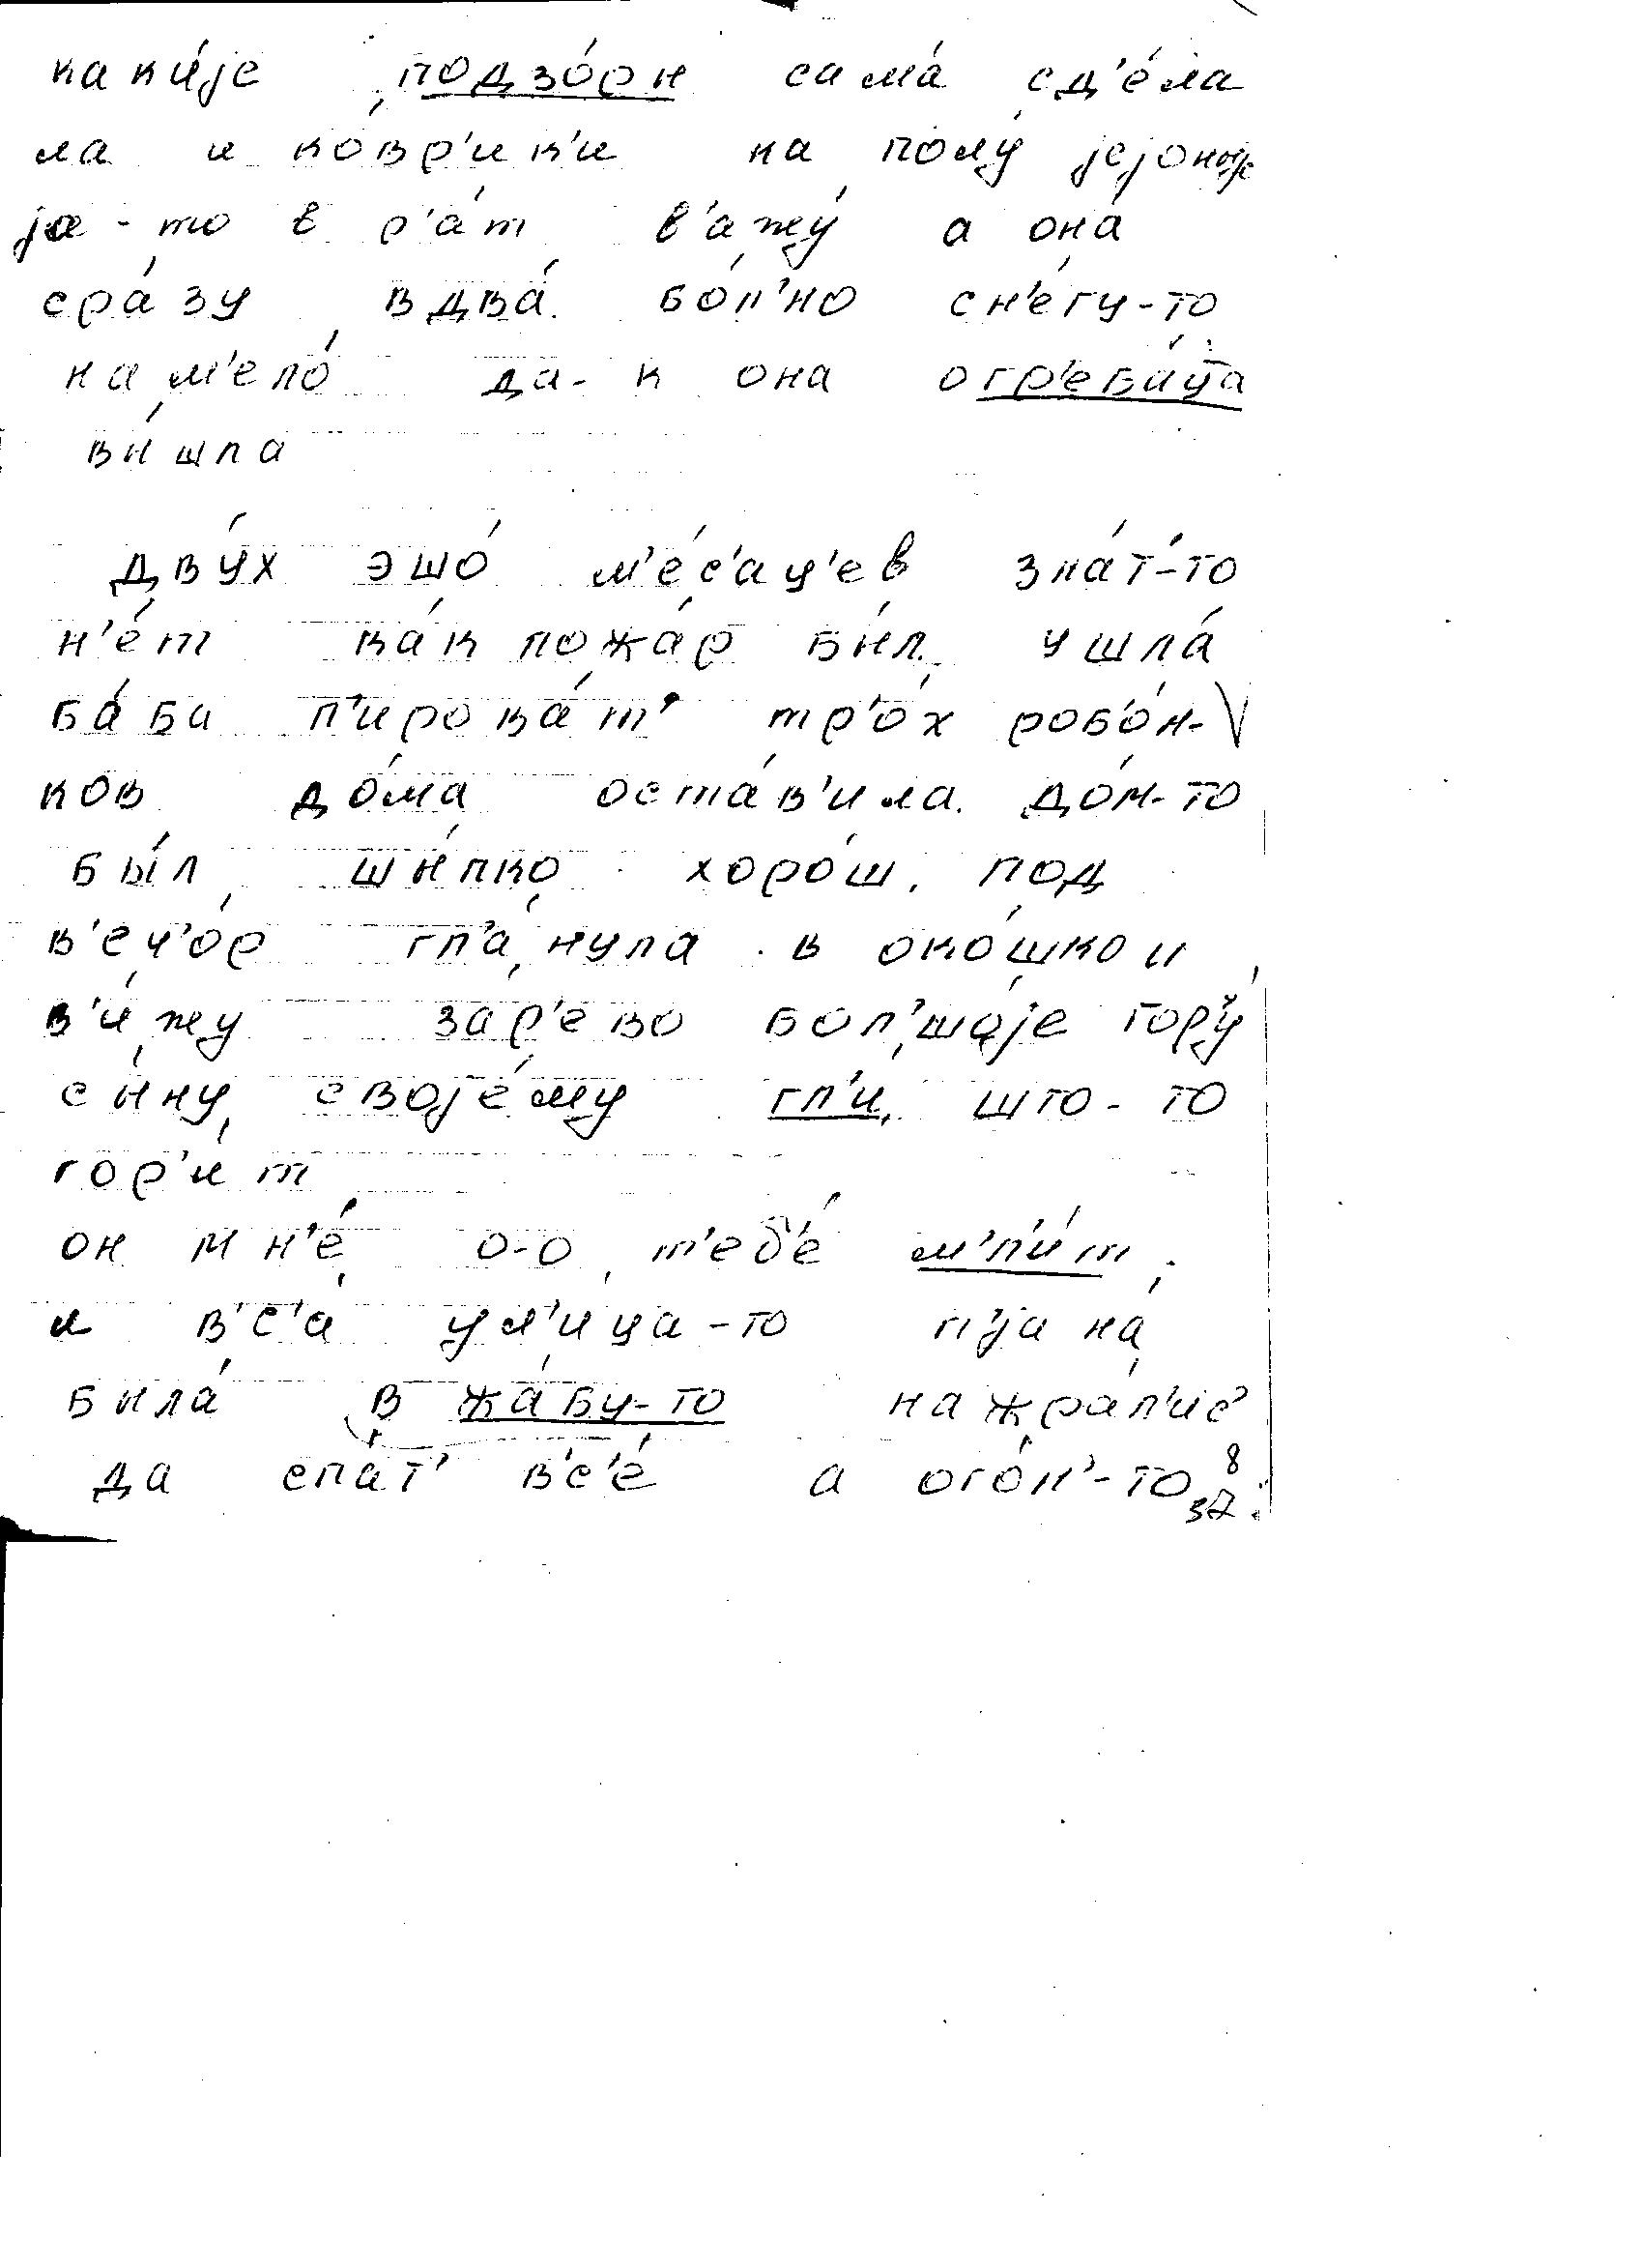 каки́jе подзо́ри сама́ сд'е́ла
ла и ко́вр'ик'и на полу́ jejоныjе
jа-то в р'а́т в'ажу́ а она́
сра́зу вдва́. бо́л'но сн'е́гу-то
нам'ело́ да-к она огр'еба́ца
ви́шла
дву́х эшо́ м'е́с'ац'ев зна́т'-то
н'е́т ка́к пожа́р би́л. ушла́
ба́ба п'ирова́т' тр'о́х роб'о́н-
ков до́ма оста́в'ила. до́м-то
бы́л ши́пко хоро́ш. под
в'е́ч'о́р гл'а́нула в око́шко и
в'и́жу за́р'ево бол'шо́jе гор'у́
си́ну своjе́му гл'и, што-то
гор'и́т
он мн'е́ о-о, т'еб'е́ м'л'и́т,
и в'с'а́ у́л'ица-то п'jана́
била́ в жа́бу-то нажра́л'ис'
да спа́т' в'с'е́ а ого́н'-то
8
32